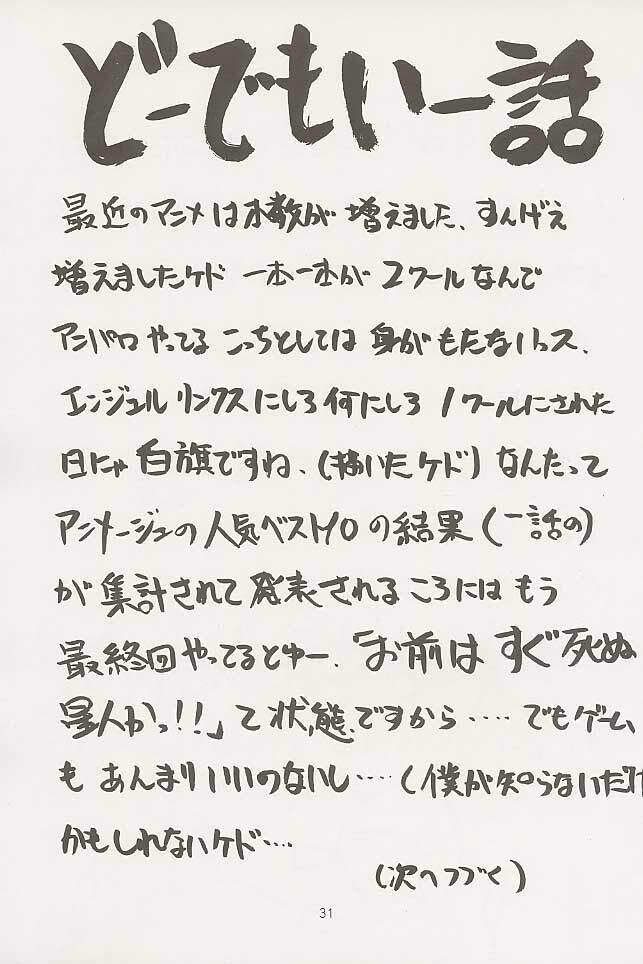 どーでもいー話
最近のアニメは本数が増えました、すんげえ
増えましたケド 一本一本が2クールなんで
アニパロやってるこっちとしては身がもたないっス、
エンジェルリンクスにしろ何にしろ1クールにされた
日にゃ白旗ですね、(描いたケド)なんたって
アニメージュの人気ベスト10の結果(一話の)
が集計されて発表されるころにはもう
最終回やってるとゆー、「お前はすぐ死ぬ
星人かっ!!」て状態ですから‥‥でもゲーム
もあんまりいいのないし‥‥(僕が知らないだけ
かもしれないケド‥‥
(次へつづく)
31